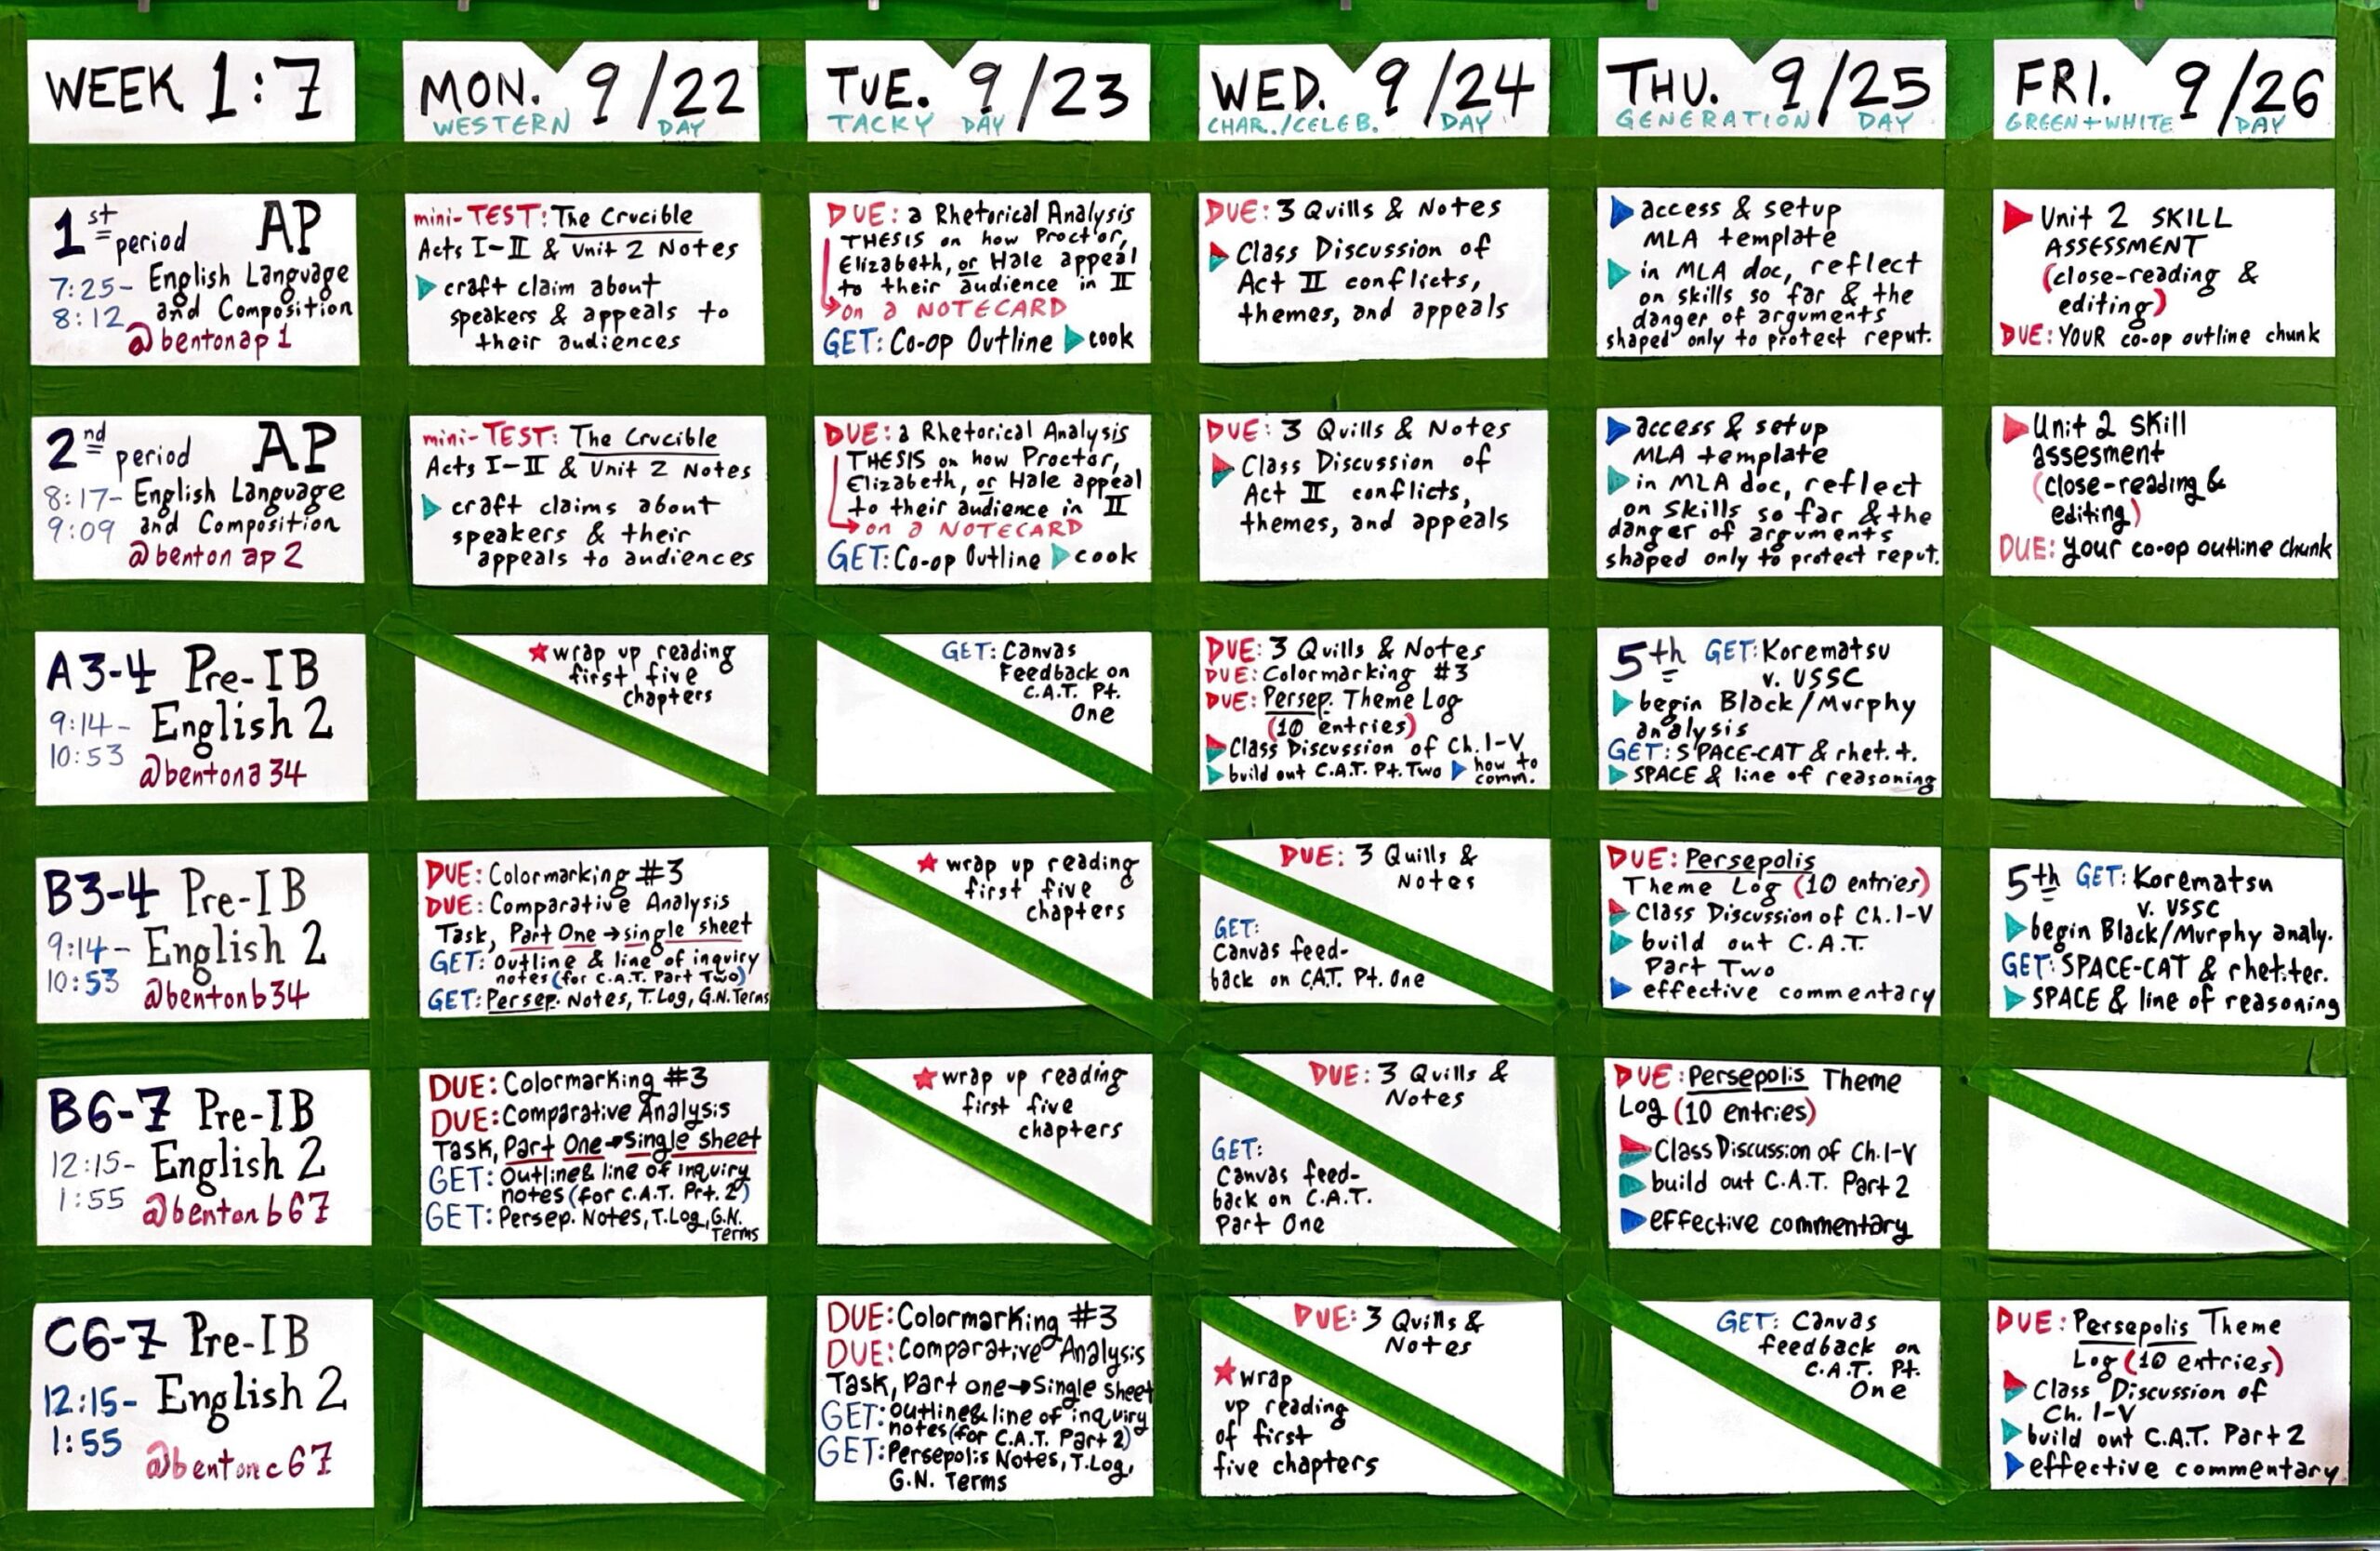 WEEK 1:7
MON. 9/22
WESTERN DAY
TUE. 9/23
TACKY DAY
WED. 9/24
CHAR./CELEB. DAY
THU. 9/25
GENERATION DAY
FRI. 9/26
GREEN+WHITE DAY
1st period AP
7:25- English Language
8:12 and Composition
@bentonap1
mini-TEST: The Crucible
Acts I-II & Unit 2 Notes
craft claim about
speakers & appeals to
their audiences
DUE: a Rhetorical Analysis
THESIS on how Proctor,
Elizabeth, or Hale appeal
to their audience in II
on a NOTECARD
GET: Co-op Outline ▶cook
DUE: 3 Quills & Notes
Class Discussion of
Act II conflicts,
themes, and appeals
access & setup
MLA template
in MLA doc, reflect
on skills so far & the
danger of arguments
shaped only to protect reput.
Unit 2 SKILL
ASSESSMENT
(close-reading &
editing)
DUE: YOUR co-op outline chunk
2nd period AP
8:17- English Language
9:09 and Composition
@benton ap2
mini-TEST: The Crucible
Acts I-II & Unit 2 Notes
craft claims about
speakers & their
appeals to audiences
DUE: a Rhetorical Analysis
THESIS on how Proctor,
Elizabeth, or Hale appeal
to their audience in II
on a NOTECARD
GET: Co-op Outline ▶cook
DUE: 3 Quills & Notes
Class Discussion of
Act II conflicts,
themes, and appeals
access & setup
MLA template
in MLA doc, reflect
on skills so far & the
danger of arguments
shaped only to protect reput.
Unit 2 Skill
assesment
(close-reading &
editing)
DUE: your co-op outline chunk
A3-4 Pre-IB
9:14- English 2
10:53
@bentona34
★wrap up reading
first five
chapters
GET: Canvas
Feedback on
C.A.T. Pt.
One
DUE: 3 Quills & Notes
DUE: Colormarking #3
DUE: Persep. Theme Log
(10 entries)
Class Discussion of Ch. I-V
build out C.A.T. Pt. Two ▶ how to
comm.
5th GET: Korematsu
v. USSC
begin Black/Murphy
analysis
GET: SPACE-CAT & rhet. t.
SPACE & line of reasoning
B3-4 Pre-IB
9:14- English 2
10:53
@bentonb34
DUE: Colormarking #3
DUE: Comparative Analysis
Task, Part One → single sheet
GET: outline & line of inquiry
notes (for C.A.T. Part Two)
GET: Persep. Notes, T. Log, G.N. Terms
★ wrap up reading
first five
chapters
DUE: 3 Quills &
Notes
GET:
Canvas feed-
back on C.A.T. Pt. One
DUE: Persepolis
Theme Log (10 entries)
Class Discussion of Ch. I-V
build out C.A.T.
Part Two
effective commentary
5th GET: Korematsu
v. USSC
begin Black/Murphy analy.
GET: SPACE-CAT & rhet. ter.
SPACE & line of reasoning
B6-7 Pre-IB
12:15- English 2
1:55
@bentonb67
DUE: Colormarking #3
DUE: Comparative Analysis
Task, Part One → Single sheet
GET: Outline & line of inquiry
notes (for C.A.T. Prt. 2)
GET: Persep. Notes, T. Log, G.N.
Terms
★ wrap up reading
first five
chapters
DUE: 3 Quills &
Notes
GET:
Canvas feed-
back on C.A.T.
Part One
DUE: Persepolis Theme
Log (10 entries)
Class Discussion of Ch. I-V
build out C.A.T. Part 2
effective commentary
C6-7 Pre-IB
12:15- English 2
1:55
@bentonc67
DUE: Colormarking #3
DUE: Comparative Analysis
Task, Part one → Single sheet
GET: outline & line of inquiry
notes (for C.A.T. Part 2)
GET: Persepolis Notes, T. Log,
G.N. Terms
DUE: 3 Quills &
Notes
★ wrap
up reading
of first
five chapters
GET: Canvas
feedback on
C.A.T. Pt.
One
DUE: Persepolis Theme
Log (10 entries)
Class Discussion of
Ch. I-V
build out C.A.T. Part 2
effective commentary